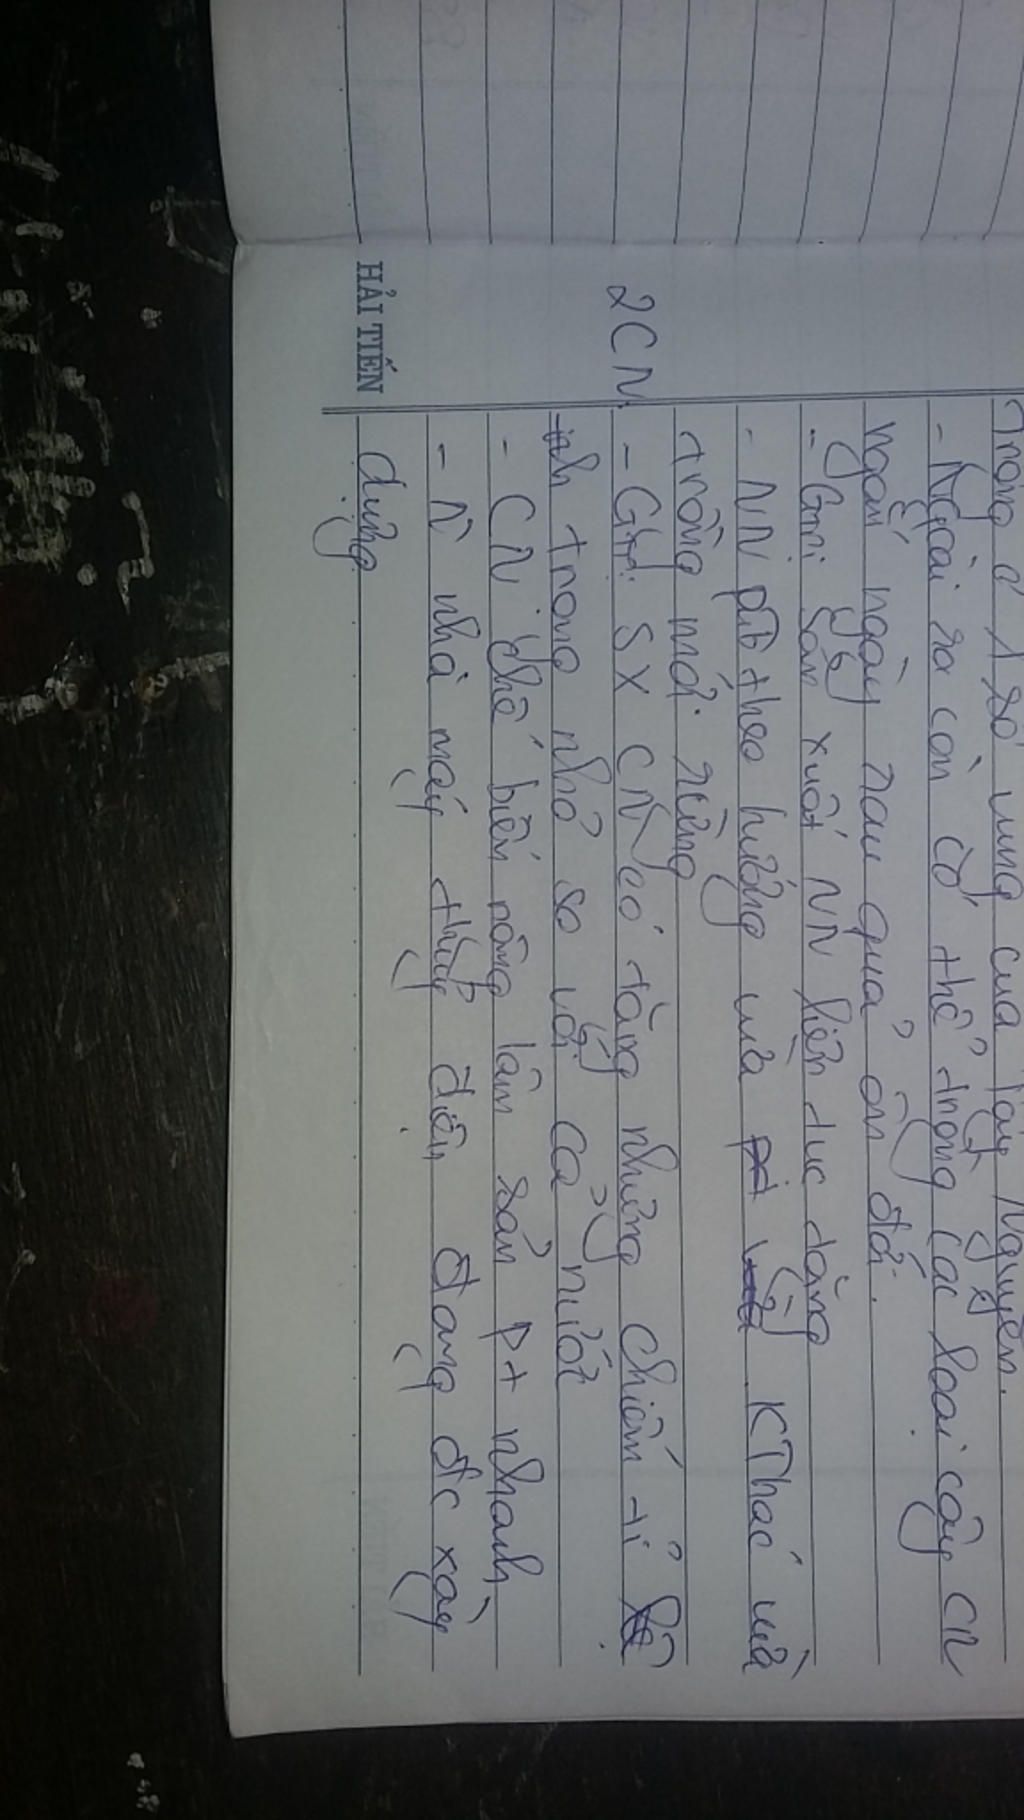 trọng ở 1 số vùng của Tây Nguyên.
- Ngoài ra còn có thể trồng các loại cây CN
ngắn ngày rau quả ôn đới.
- Gtrị sản xuất NN liên tục tăng
- NN ptr theo hướng vừa KThác vừa
trồng mới rừng
2 CN
- Gtrị SX CN có tăng nhưng chiếm tỉ
trong nhỏ so với cả nước
- CN chế biến nông lâm sản pt nhanh
- N nhà máy thủy điện đang đc xây
dựng
HẢI TIẾN